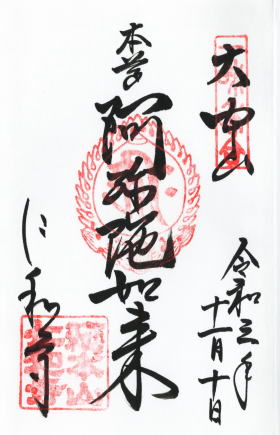 大内山
令和三年
十一月十日
本尊
阿弥陀如来
仁和寺